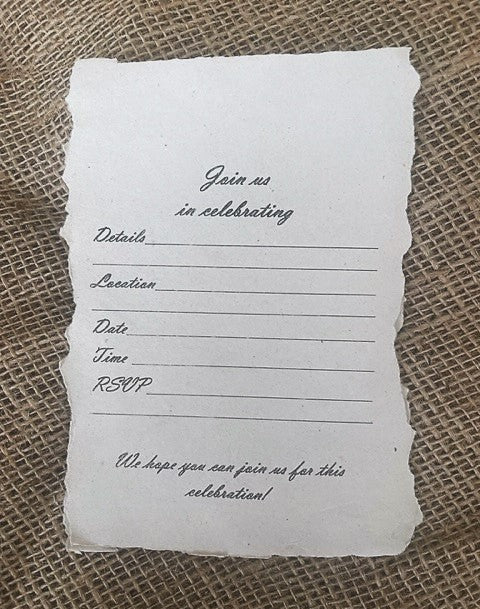 Join us
in celebrating
Details
Location
Date
Time
RSVP
We hope you can join us for this
celebration!